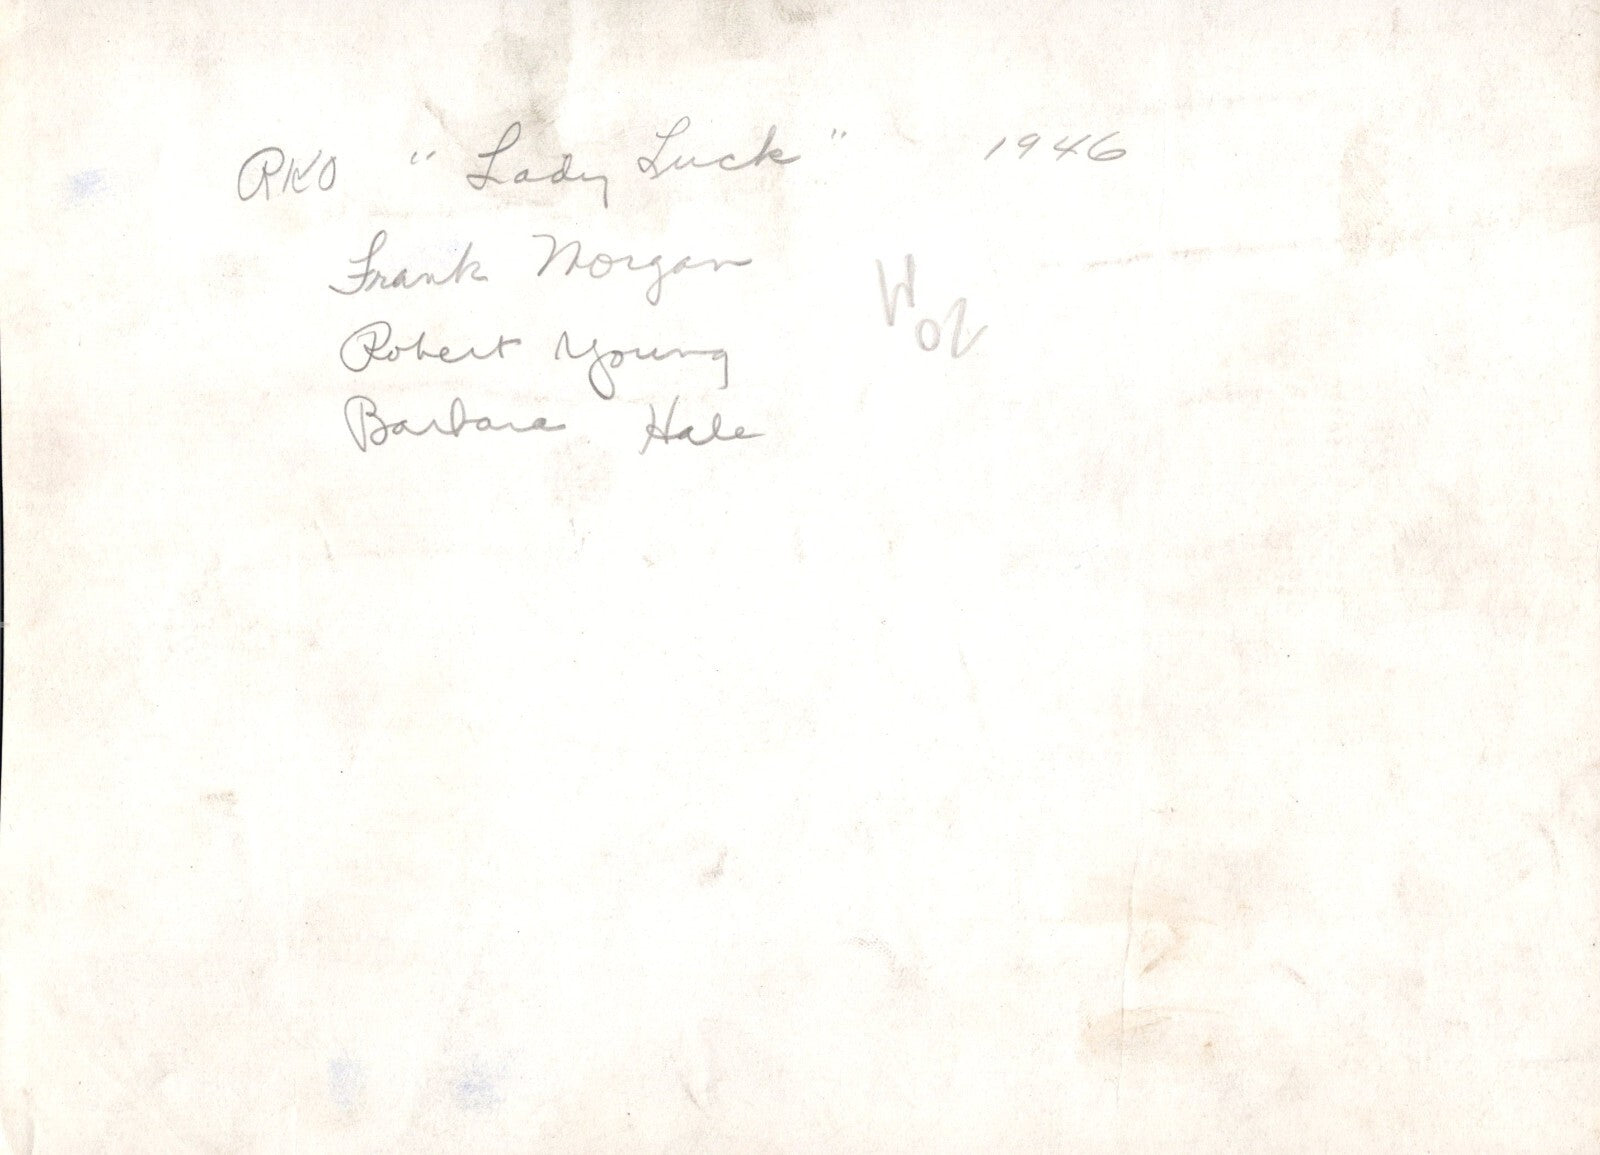 RKO "Lady Luck" 1946
Frank Morgan
Robert Young
Barbara Hale